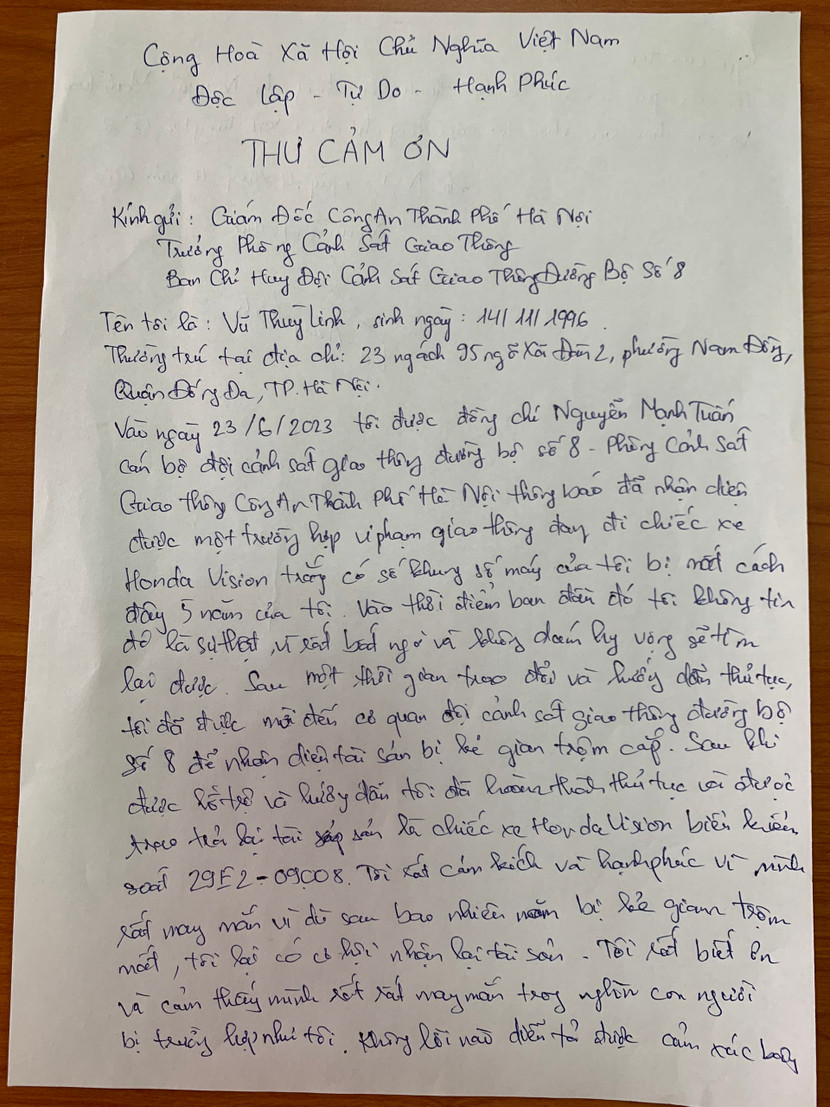 Cộng Hoà Xã Hội Chủ Nghĩa Việt Nam
Độc Lập - Tự Do - Hạnh Phúc
THƯ CẢM ƠN
Kính gửi: Giám Đốc Công An Thành Phố Hà Nội
Trưởng Phòng Cảnh Sát Giao Thông
Ban Chỉ Huy Đội Cảnh Sát Giao Thông Đường Bộ Số 8
Tên tôi là: Vũ Thuỳ Linh, sinh ngày: 14/11/1996.
Thường trú tại địa chỉ: 23 ngách 95 ngõ Xã Đàn 2, phường Nam Đồng,
Quận Đống Đa, TP. Hà Nội.
Vào ngày 23/6/2023 tôi được đồng chí Nguyễn Mạnh Tuấn
cán bộ đội cảnh sát giao thông đường bộ số 8 - Phòng Cảnh Sát
Giao Thông Công An Thành Phố Hà Nội thông báo đã nhận diện
được một trường hợp vi phạm giao thông đang đi chiếc xe
Honda Vision trắng có số khung số máy của tôi bị mất cách
đây 5 năm của tôi. Vào thời điểm ban đầu đó tôi không tin
đó là sự thật, vì rất bất ngờ và không dám hy vọng sẽ tìm
lại được. Sau một thời gian trao đổi và hướng dẫn thủ tục,
tôi đã được mời đến cơ quan đội cảnh sát giao thông đường bộ
số 8 để nhận diện tài sản bị kẻ gian trộm cắp. Sau khi
được hỗ trợ và hướng dẫn tôi đã hoàn thành thủ tục và được
trao trả lại tài sản là chiếc xe Honda Vision biển kiểm
soát 29E2-09008. Tôi rất cảm kích và hạnh phúc vì mình
rất may mắn vì dù sau bao nhiêu năm bị kẻ gian trộm
mất, tôi lại có cơ hội nhận lại tài sản. Tôi rất biết ơn
và cảm thấy mình rất rất may mắn trong nghìn con người
bị trường hợp như tôi. Không lời nào diễn tả được cảm xúc